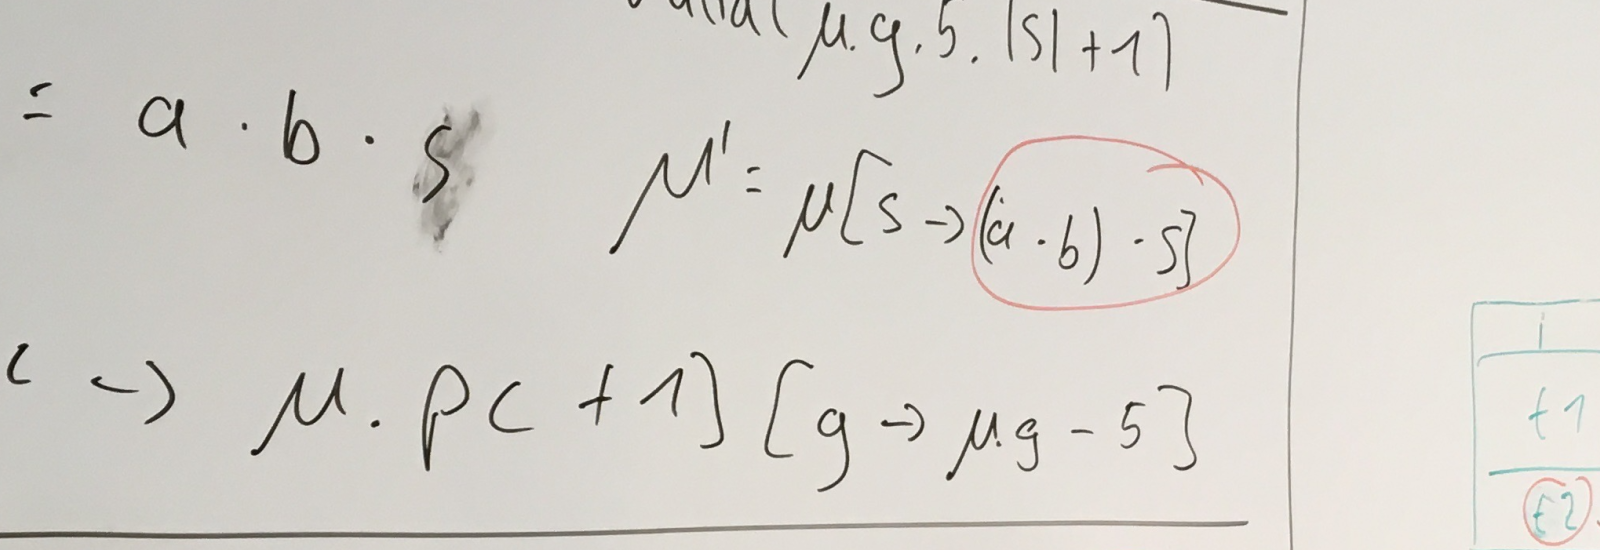 μ.g.5.|s|+1]
= a · b · s
μ' = μ[s → (a · b) · s]
c → μ.pc + 1] [g → μ.g - 5]
i
t1
t2